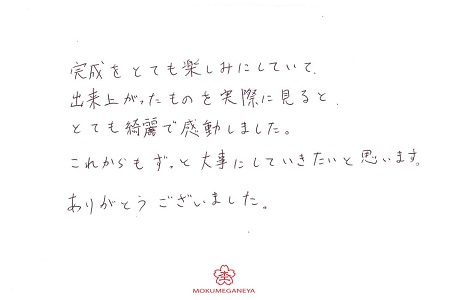 完成をとても楽しみにしていて、
出来上がったものを実際に見ると、
とても綺麗で感動しました。
これからもずっと大事にしていきたいと思います。
ありがとうございました。
杢
MOKUMEGANEYA